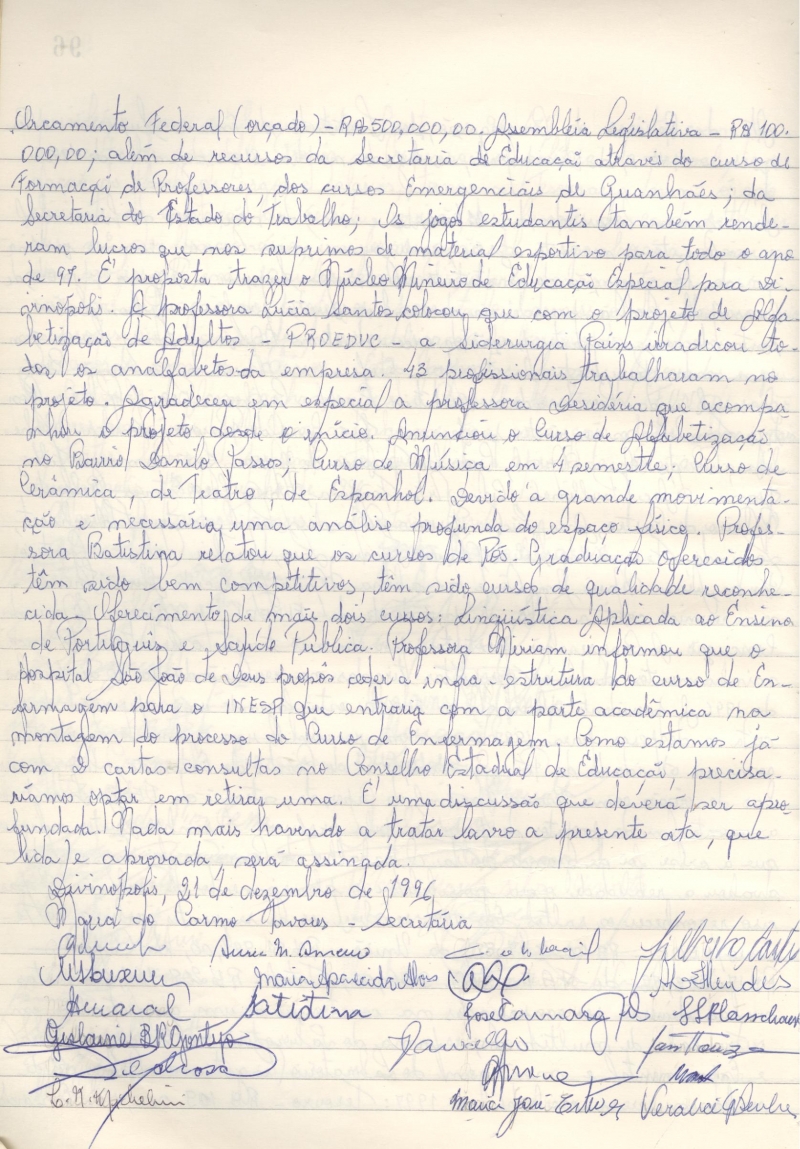 Orcamento Federal (orçado) - R$ 500.000,00. Assembléia Legislativa - R$ 100.
000,00; além de recursos da Secretaria de Educação através do curso de
Formação de Professores, dos cursos Emergenciais de Guanhães; da
Secretaria do Estado do Trabalho; Os jogos estudantis também rende-
ram lucros que nos suprimos de material esportivo para todo o ano
de 97. É proposta trazer o Núcleo Mineiro de Educação Especial para Di-
vinópolis. A professora Lúcia Santos colocou que com o projeto de Alfa-
betização de Adultos - PROEDUC - a Siderurgia Pains irradicou to-
dos os analfabetos da empresa. 43 profissionais trabalharam no
projeto. Agradeceu em especial a professora Desidéria que acompa-
nhou o projeto desde o início. Anunciou o Curso de Alfabetização
no Bairro Danilo Passos; Curso de Música em 4 semestre; Curso de
Cerâmica, de Teatro, de Espanhol. Devido a grande movimenta-
ção é necessária uma análise profunda do espaço físico. Profes-
sora Batistina relatou que os cursos de Pós-Graduação oferecidos
têm sido bem competitivos, têm sido cursos de qualidade reconhe-
cida. Oferecimento de mais dois cursos: Lingüística Aplicada ao Ensino
de Português e Saúde Pública. Professora Miriam informou que o
hospital São João de Deus propôs ceder a infra-estrutura do curso de En-
fermagem para o INESP que entraria com a parte acadêmica na
montagem do processo do Curso de Enfermagem. Como estamos já
com 2 cartas consultas no Conselho Estadual de Educação, precisa-
ríamos optar em retirar uma. É uma discussão que deverá ser apro-
fundada. Nada mais havendo a tratar lavro a presente ata, que
lida e aprovada, será assinada.
Divinópolis, 21 de dezembro de 1996
Maria do Carmo Tavares - Secretária
Maria Aparecida Alves
Mendes
Amaral Batistina José Camargo
Ghislaine
Maria José